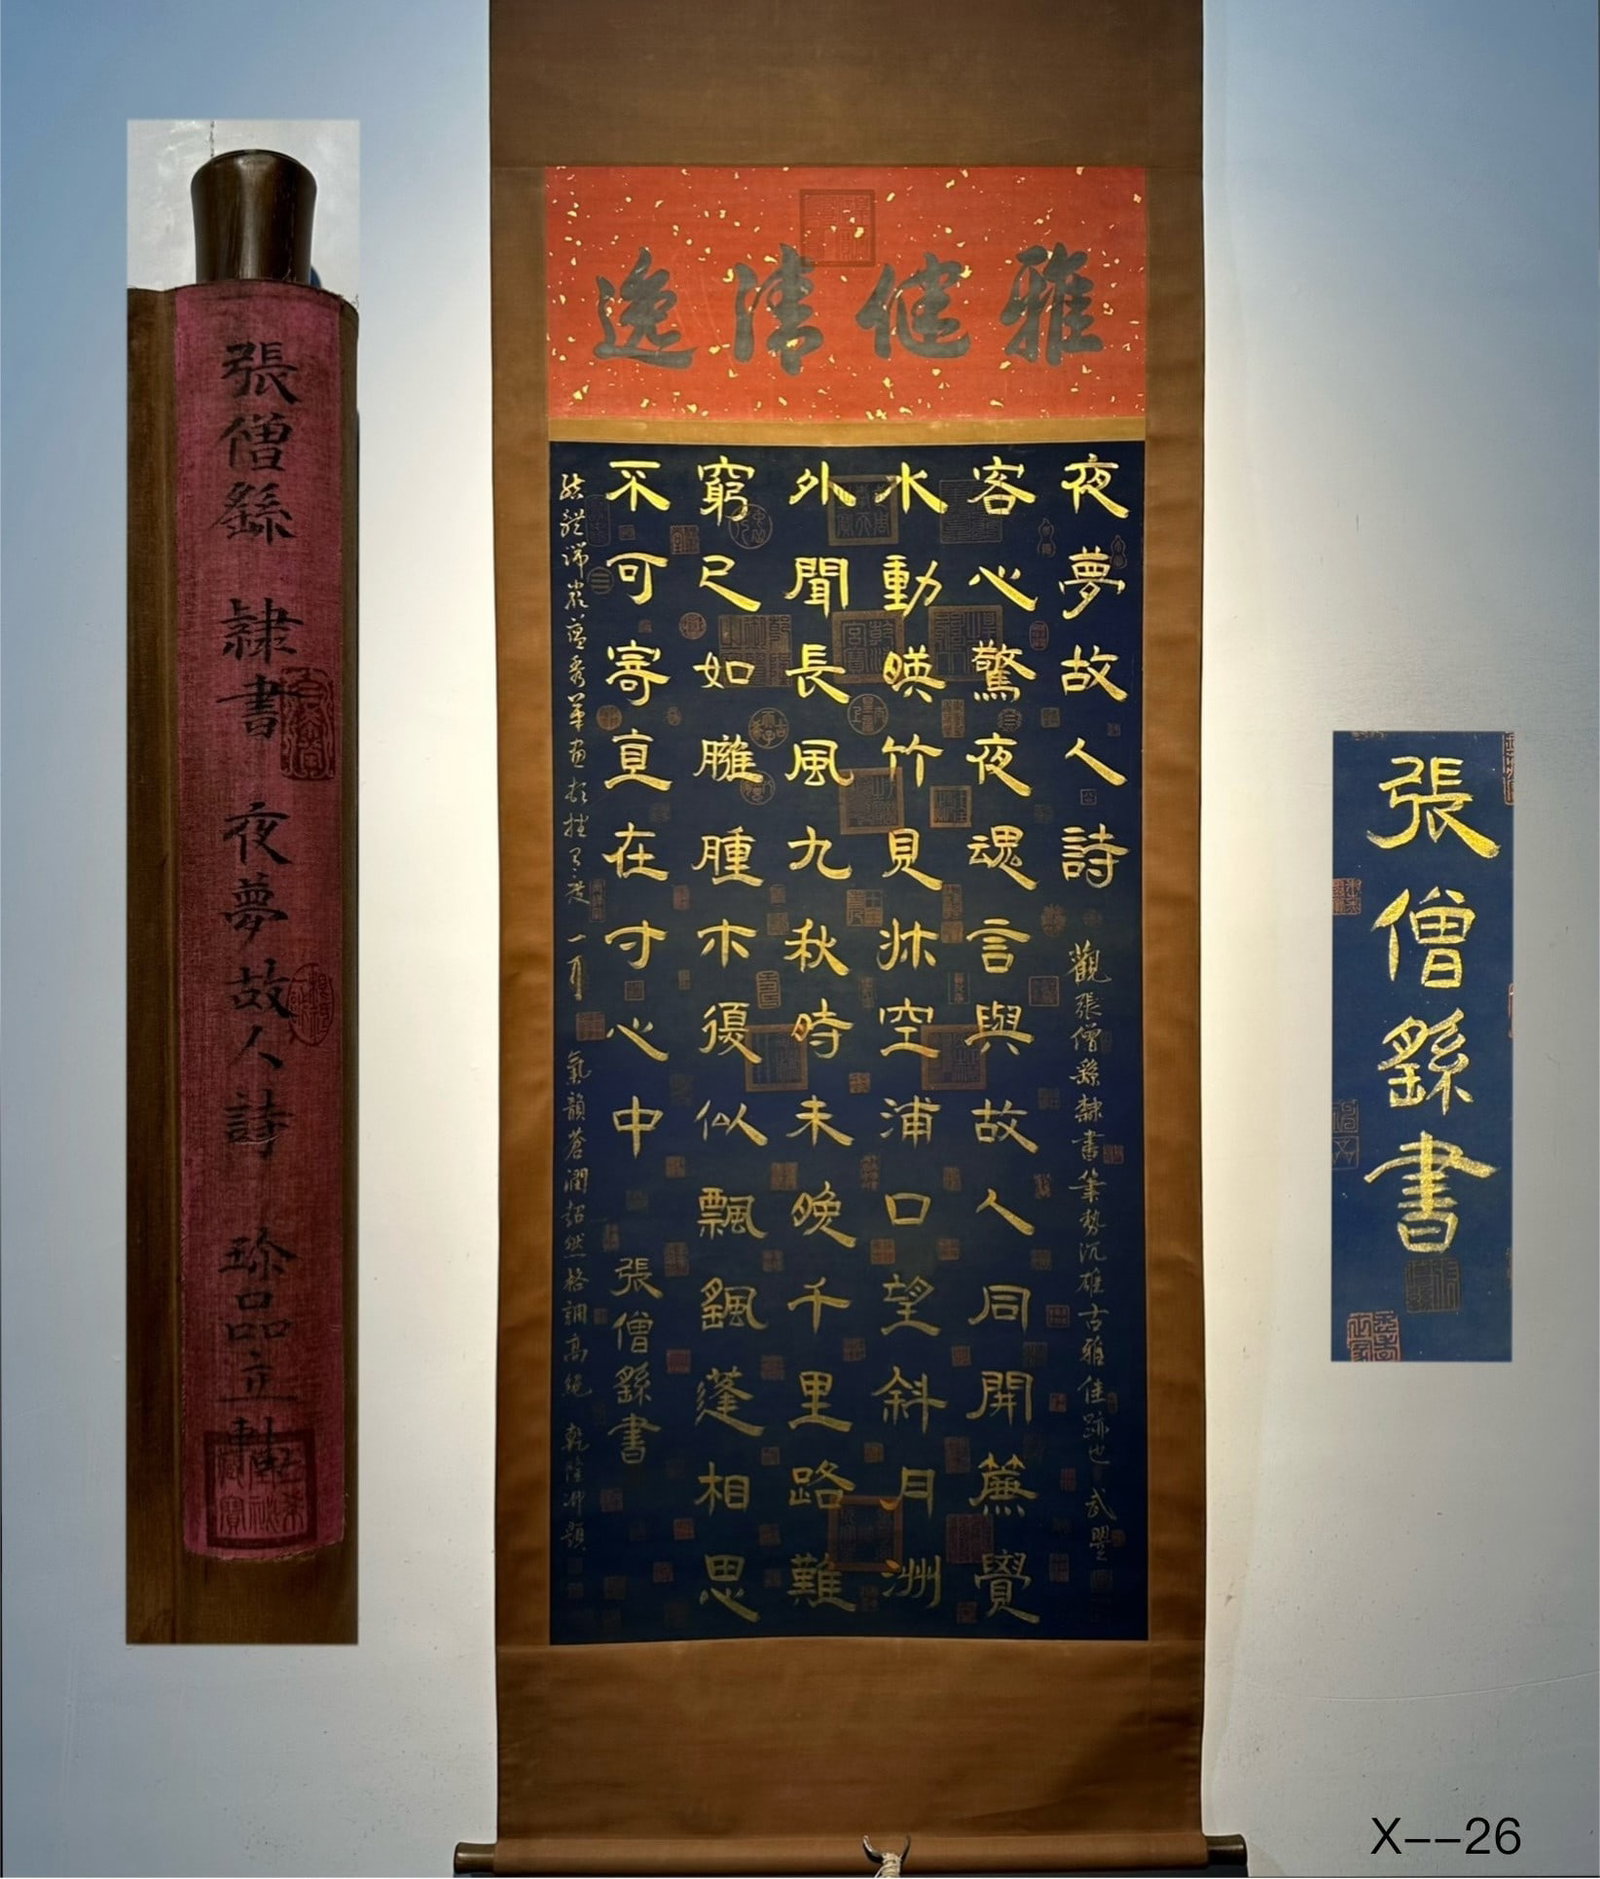 張僧繇 隸書 夜夢故人詩 珍品立軸
雅健清逸
夜夢故人詩
觀張僧繇隸書筆勢沉雄古雅佳跡也 武曌
客心驚夜魂言與故人同開簾覺
水動暎竹見牀空浦口望斜月洲
外聞長風九秋時未晚千里路難
窮尺如臃腫木復似飄颻蓬相思
不可寄直在寸心中
張僧繇書
氣韻蒼潤超然格調高絕 乾隆御題
張僧繇書
X--26